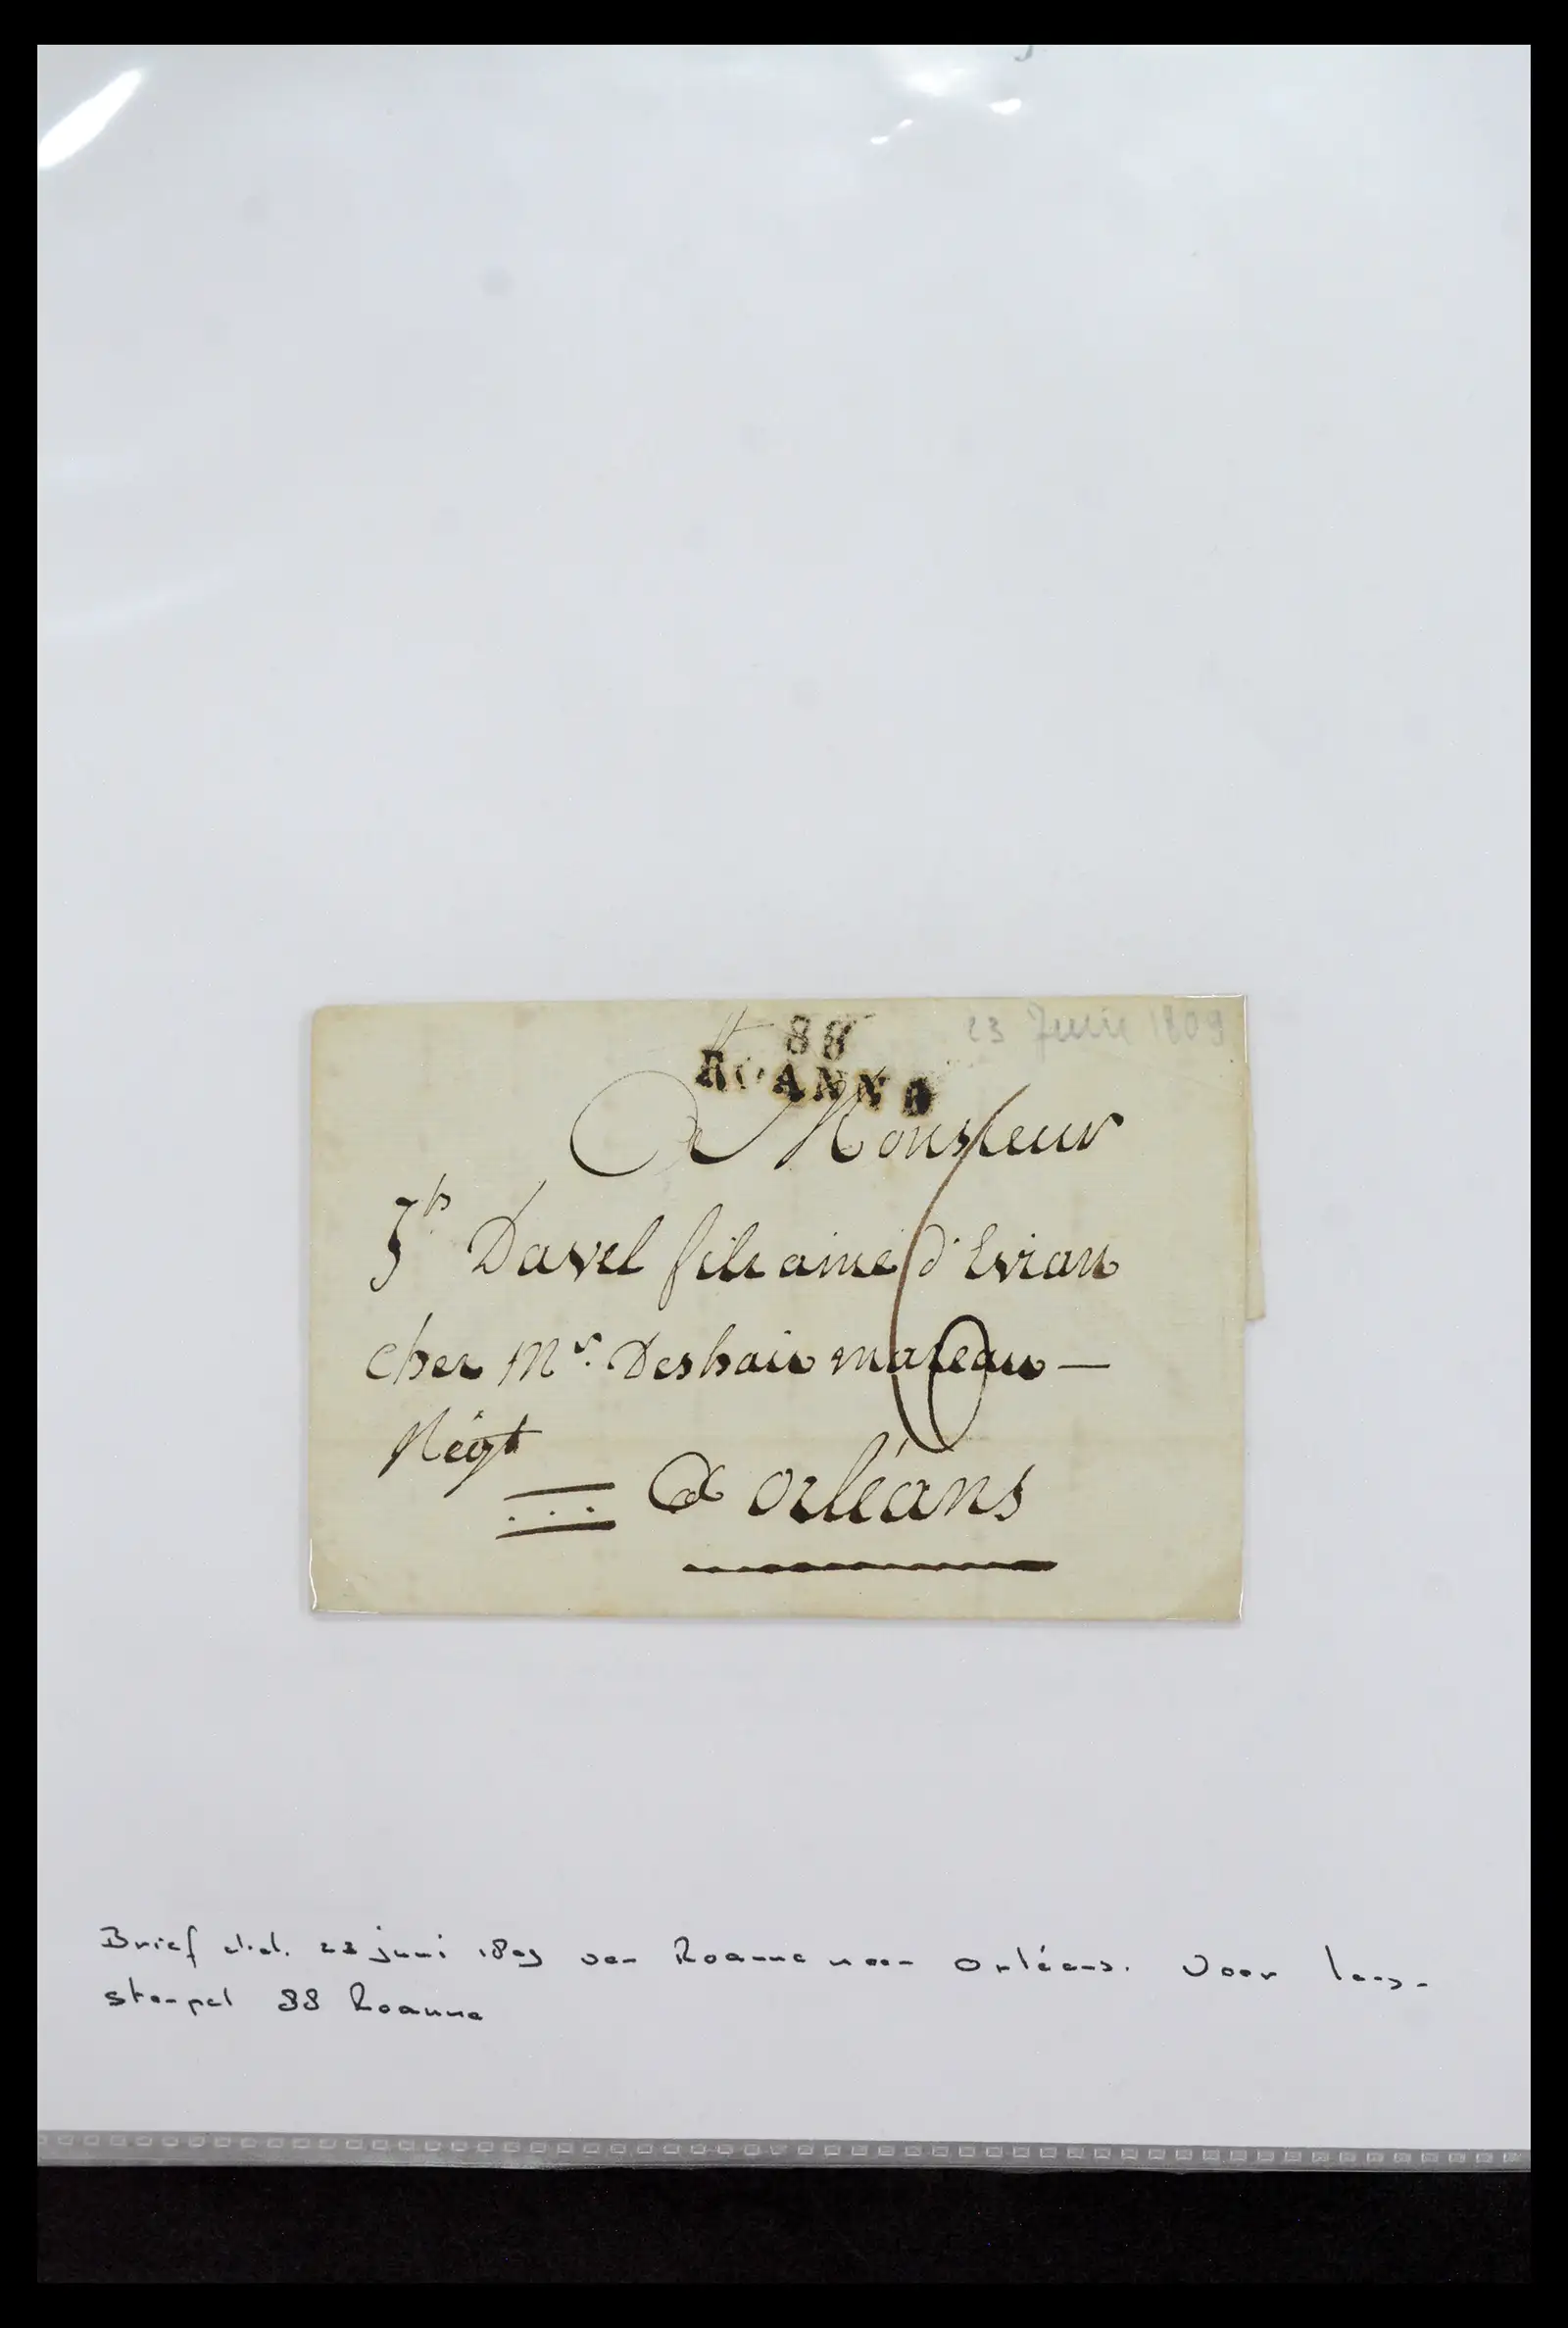 88
ROANNE
23 Juin 1809
A Monsieur
Jh Davel fils ainé d'Evian
chez Mr. Deshais mareau —
Négt
A orléans
6
Brief d.d. 23 juni 1809 van Roanne naar Orléans. Voor langs-
stempel 88 Roanne